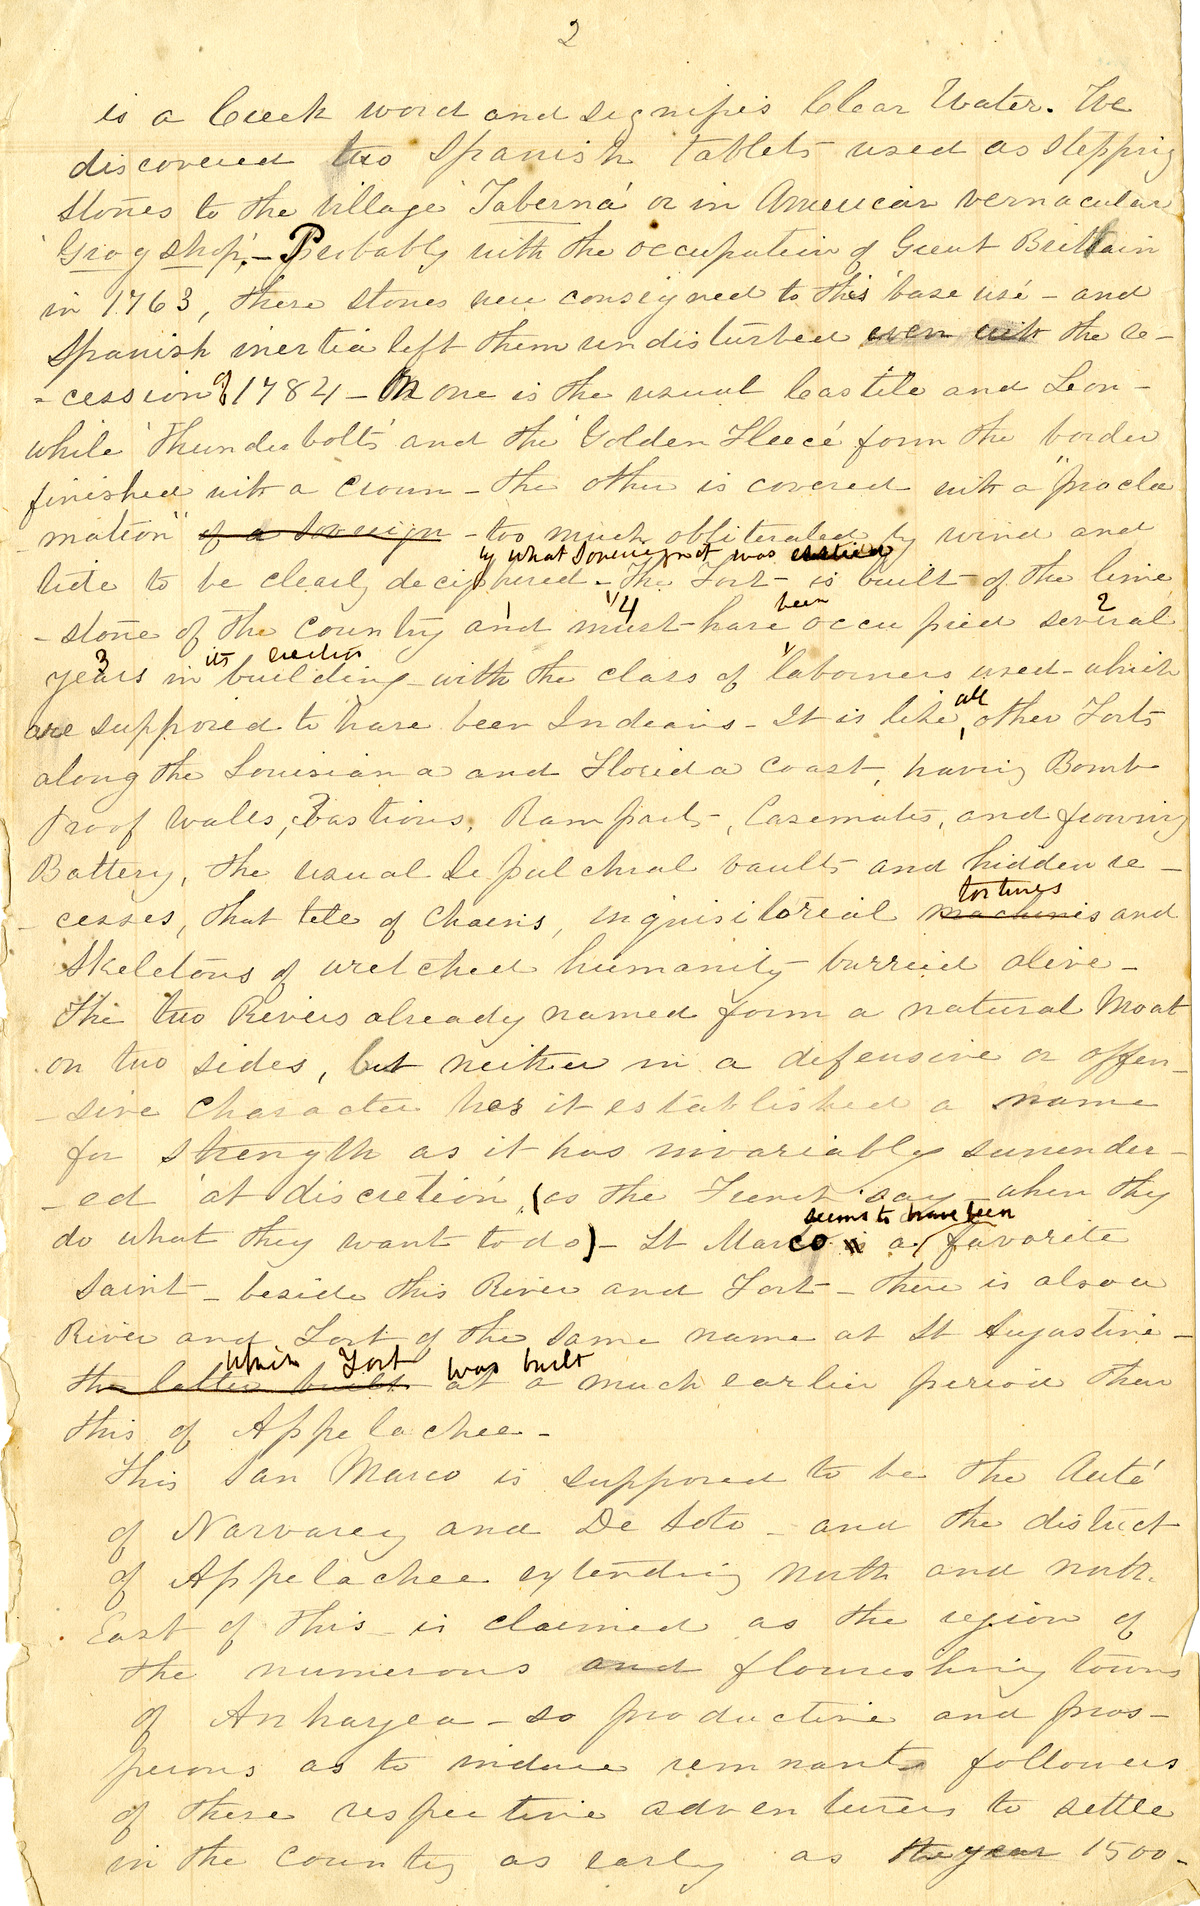 2
is a Creek word and signifies Clear Water. We
discovered two Spanish tablets used as stepping
stones to the village 'Taberna' or in American vernacular
'Grog shop'. – Probably with the occupation of Great Brittain
in 1763, these stones were consigned to this 'base use' – and
Spanish inertia left them undisturbed even with the re–
–cession of 1784 – On one is the usual Castile and Leon –
while 'Thunderbolts' and the 'Golden Fleece' form the border
finished with a crown – the other is covered with a "procla
mation" of a sovereign – too much obliterated by wind and
by what Sovereign it was
tide to be clearly deciphered – The Fort – is built of the lime
1 4 been 2
–stone of the country and must have occupied several
3 its erection
years in building – with the class of laborers used – which
are supposed to have been Indians – It is like all other Forts
along the Louisiana and Florida coast, having Bomb
Proof walls, bastions, Ramparts, Casemates, and frowning
Battery, the usual Sepulchral vaults and hidden re–
tortures
–cesses, that tell of Chains, inquisitoreal machines and
Skeletons of wretched humanity burried alive –
The two Rivers already named form a natural Moat
on two sides, but neither in a defensive or offen–
–sive character has it established a name
for strength as it has invariably surrender–
–ed 'at discretion', (as the French say – when they
seems to have been
do what they want to do) – St Marco is a favorite
Saint – beside this River and Fort – there is also a
River and Fort of the same name at St Augustine –
which Fort was built
the latter built at a much earlier period than
this of Appelachee –
This San Marco is supposed to be the Auté
of Narvarez and De Soto – and the district
of Appelachee extending North and north
East of this – is claimed as the region of
the numerous and flourishing towns
of Anhayea – so productive and pros–
perous as to induce remnants followers
of these respective adventurers to settle
in the country as early as the year 1500 –